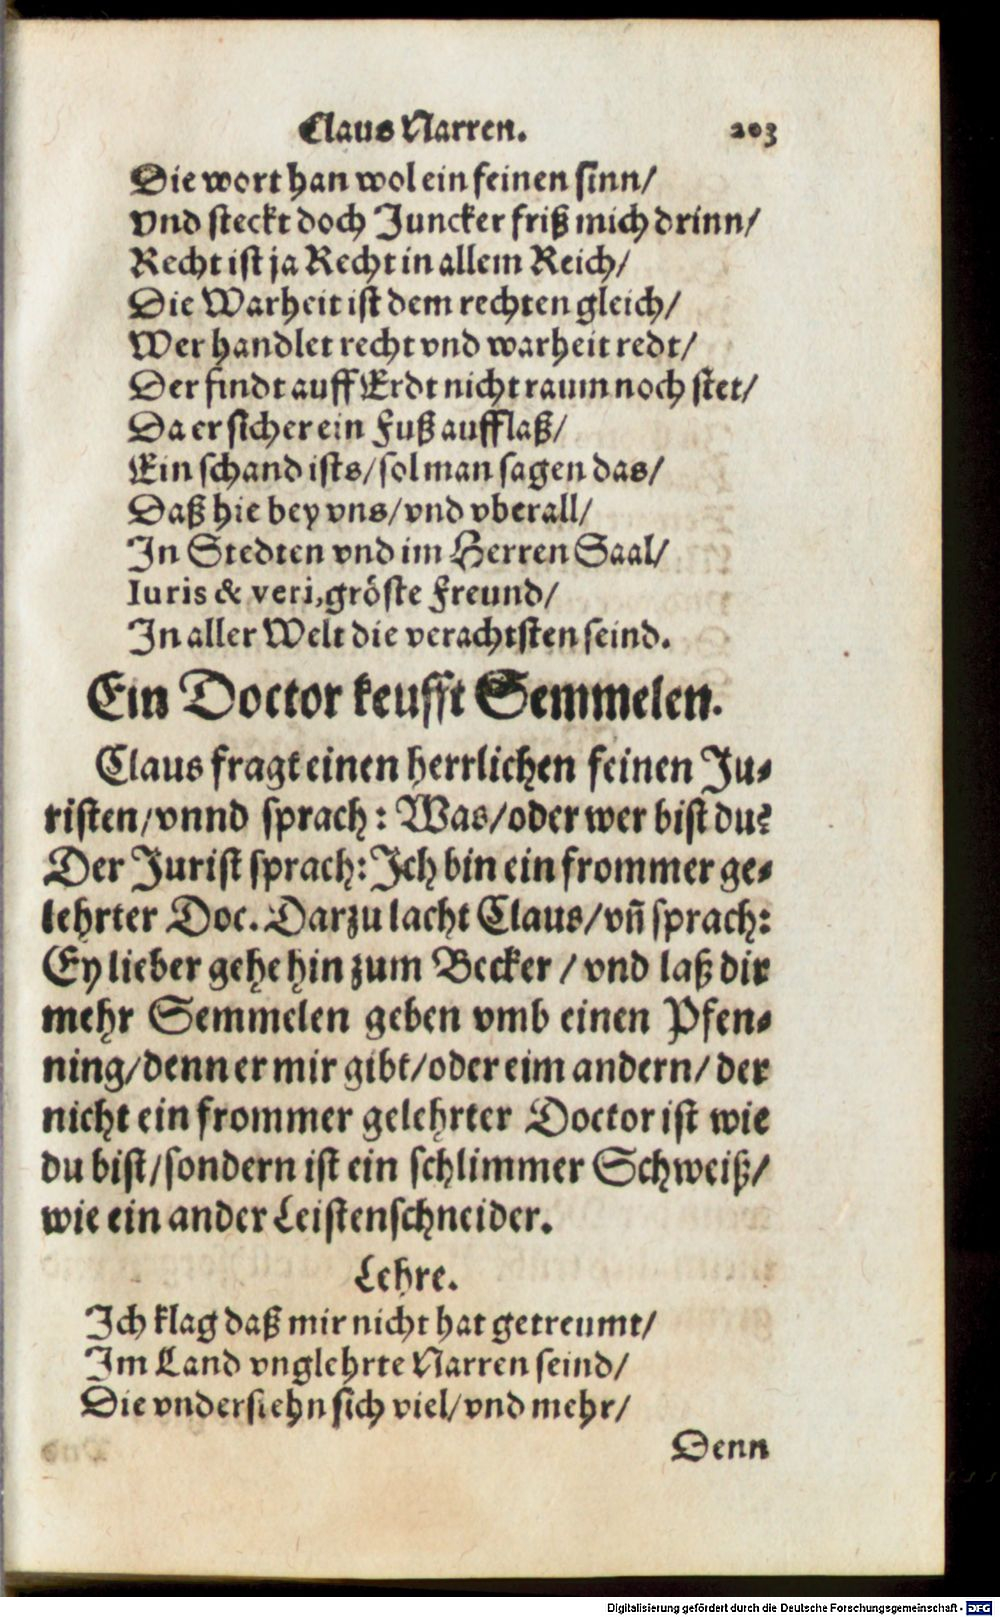 Claus Narren. 203
Die wort han wol ein feinen sinn/
Vnd steckt doch Juncker friß mich drinn/
Recht ist ja Recht in allem Reich/
Die Warheit ist dem rechten gleich/
Wer handlet recht vnd warheit redt/
Der findt auff Erdt nicht raum noch stet/
Da er sicher ein Fuß aufflaß/
Ein schand ists/sol man sagen das/
Daß hie bey vns/vnd vberall/
In Stedten vnd im Herren Saal/
Iuris & veri, gröste Freund/
In aller Welt die verachtsten seind.
Ein Doctor keufft Semmelen.
Claus fragt einen herrlichen feinen Ju-
risten/vnnd sprach: Was/oder wer bist du?
Der Jurist sprach: Ich bin ein frommer ge-
lehrter Doc. Darzu lacht Claus/vñ sprach:
Ey lieber gehe hin zum Becker/vnd laß dir
mehr Semmelen geben vmb einen Pfen-
ning/denn er mir gibt/oder eim andern/der
nicht ein frommer gelehrter Doctor ist wie
du bist/sondern ist ein schlimmer Schweiß/
wie ein ander Leistenschneider.
Lehre.
Ich klag daß mir nicht hat getreumt/
Im Land vnglehrte Narren seind/
Die vndersiehn sich viel/vnd mehr/
Denn
Digitalisierung gefördert durch die Deutsche Forschungsgemeinschaft - DFG